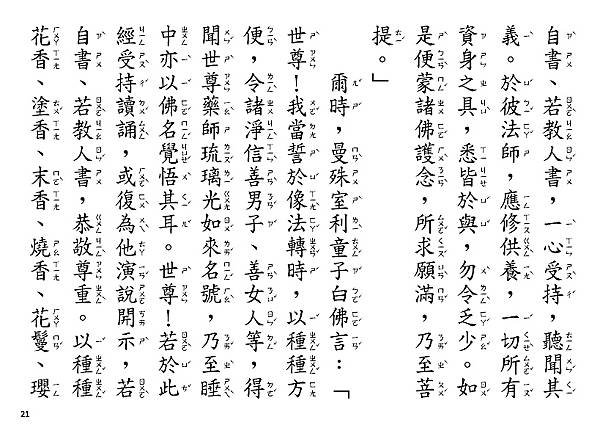 自書、若教人書，一心受持，聽聞其
義。於彼法師，應修供養，一切所有
資身之具，悉皆於與，勿令乏少。如
是便蒙諸佛護念，所求願滿，乃至菩
提。」
爾時，曼殊室利童子白佛言：「
世尊！我當誓於像法轉時，以種種方
便，令諸淨信善男子、善女人等，得
聞世尊藥師琉璃光如來名號，乃至睡
中亦以佛名覺悟其耳。世尊！若於此
經受持讀誦，或復為他演說開示，若
自書、若教人書，恭敬尊重。以種種
花香、塗香、末香、燒香、花鬘、瓔
21